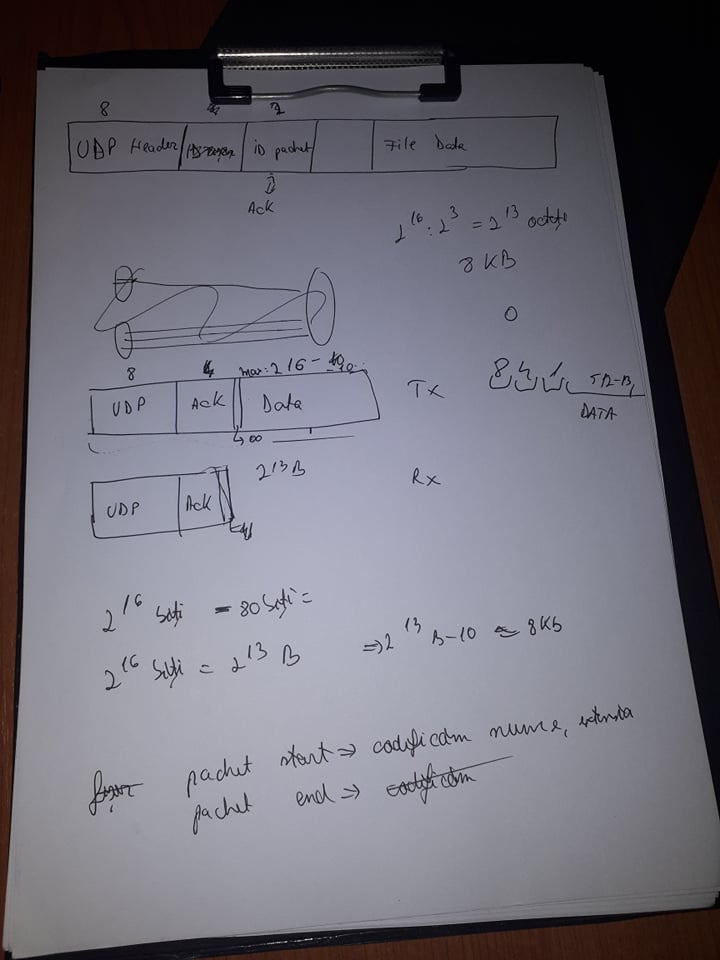 8 2
UDP Header ID packet File Data
Ack
2^16 : 2^3 = 2^13 octeți
8 KB
0
8 4 max: 2^16 -
UDP Ack Data Tx
8 4 1
DATA
∞
2^13 B
UDP Ack Rx
4
2^16 biți = 80 biți =
2^16 biți = 2^13 B => 2^13 B-10 ≈ 8Kb
pachet start => codificăm nume, extensia
pachet end => codificăm